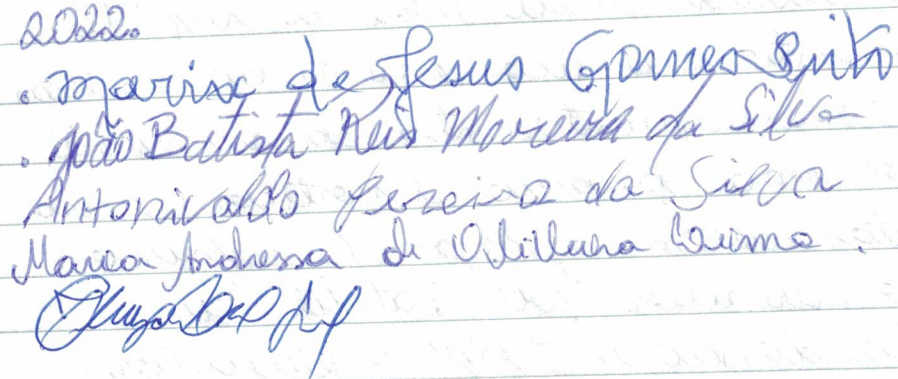 2022.
. Maria de Jesus Gomes Pinto
. João Batista Reis Moreira da Silva
Antonivaldo Pereira da Silva
Maria Andressa de Oliveira Lima.